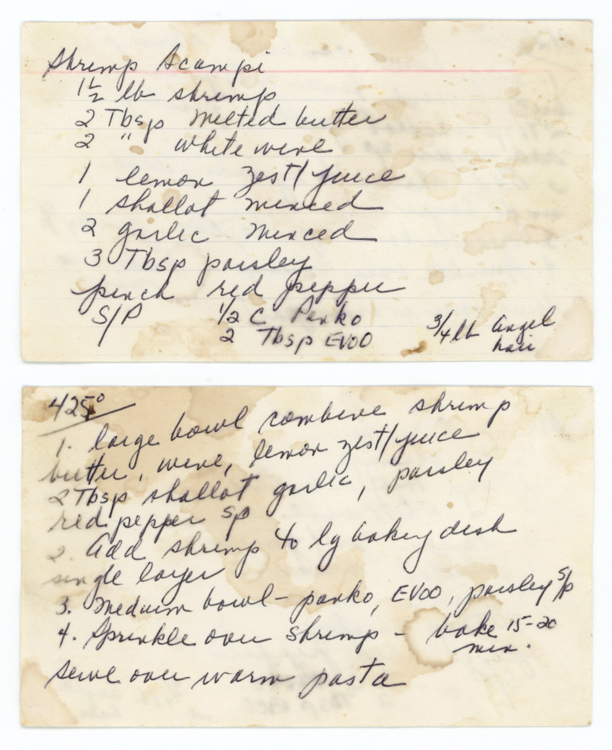 Shrimp Scampi
1 1/2 lb shrimp
2 Tbsp melted butter
2 " white wine
1 lemon zest/juice
1 shallot minced
2 garlic minced
3 Tbsp parsley
pinch red pepper
S/P 1/2 C Panko
2 Tbsp EVOO 3/4 lb angel
hair
425°
1. large bowl combine shrimp
butter, wine, lemon zest/juice
2 Tbsp shallot garlic, parsley
red pepper SP
2. add shrimp to lg baking dish
single layer
3. medium bowl - panko, EVOO, parsley S/P
4. Sprinkle over shrimp - bake 15-20
min.
serve over warm pasta